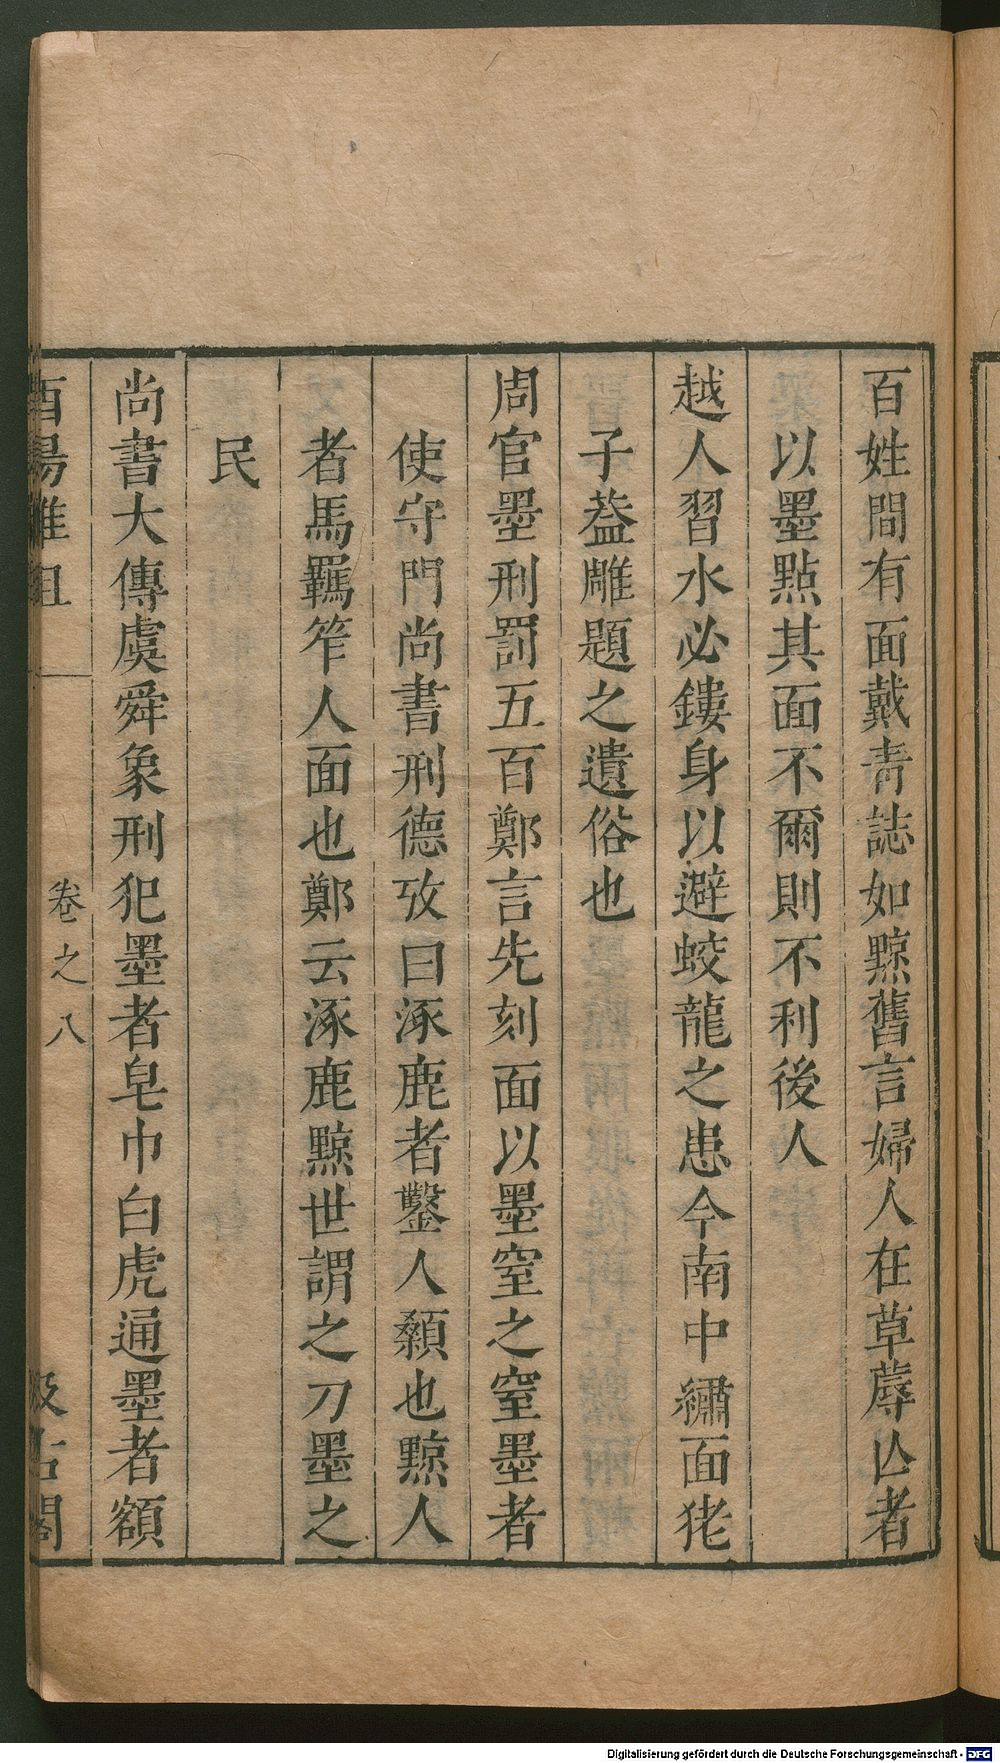 百姓間有面戴靑誌如黥舊言婦人在草蓐亾者
以墨點其面不爾則不利後人
越人習水必鏤身以避蛟龍之患今南中繡面狫
子葢雕題之遺俗也
周官墨刑罰五百鄭言先刻面以墨窒之窒墨者
使守門尚書刑德攷曰涿鹿者鑿人顙也黥人
者馬羈笮人面也鄭云涿鹿黥世謂之刀墨之
民
尚書大傳虞舜象刑犯墨者皂巾白虎通墨者額
酉陽雜俎 卷之八 汲古閣
Digitalisierung gefördert durch die Deutsche Forschungsgemeinschaft - DFG